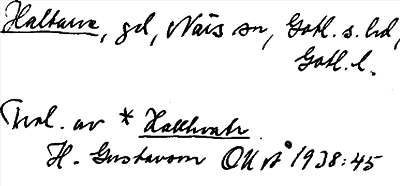 Haltarve, gd, Näs sn, Gotl. s. hd,
Gotl. l.
Trol. av * Hallvatr
H. Gustavson OUÅ 1938:45